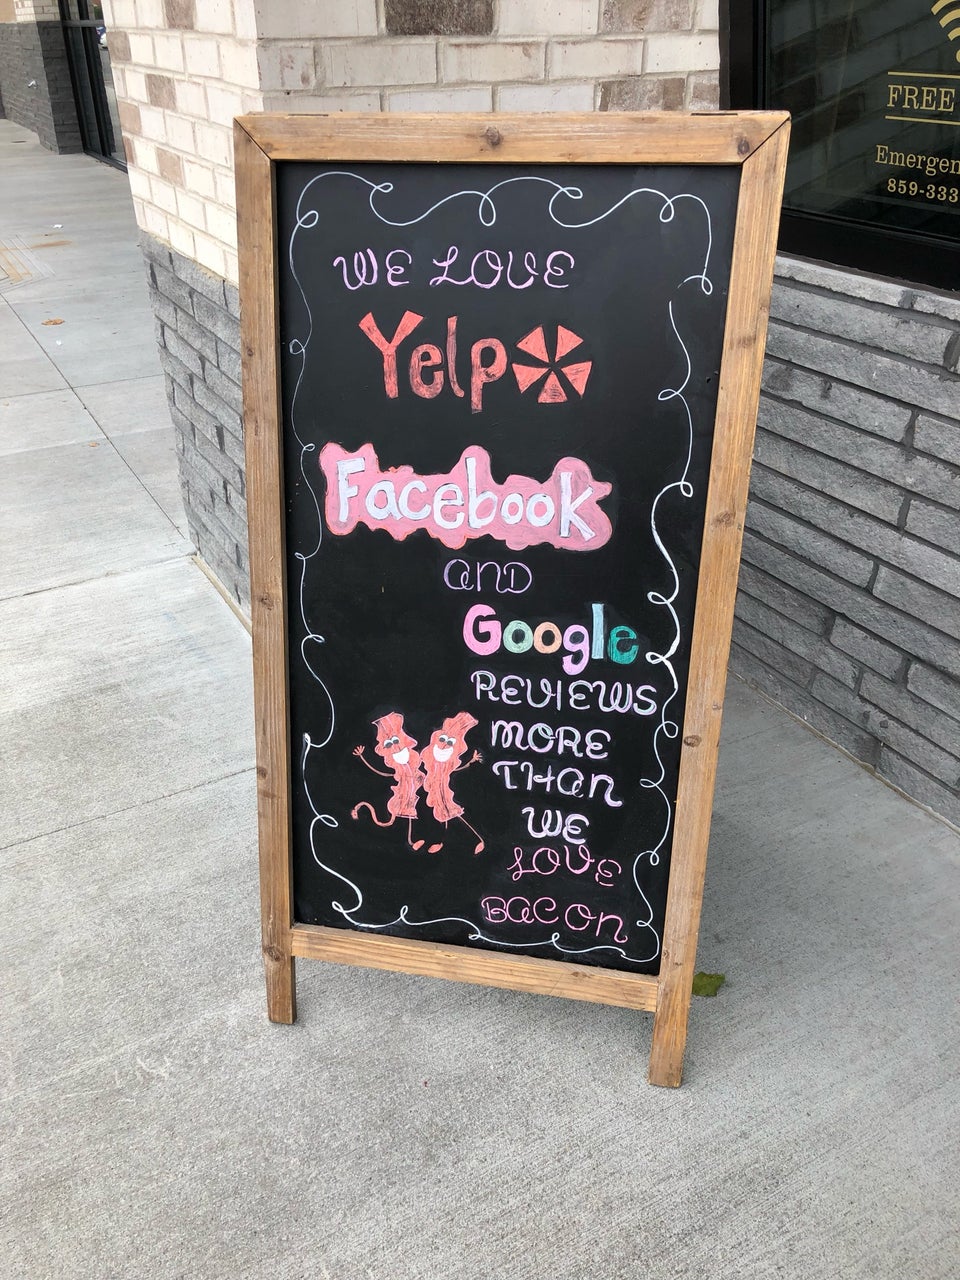 WE LOVE
Yelp
Facebook
AND
Google
REVIEWS
MORE
THAN
WE
LOVE
BACON
FREE
Emergen
859-333